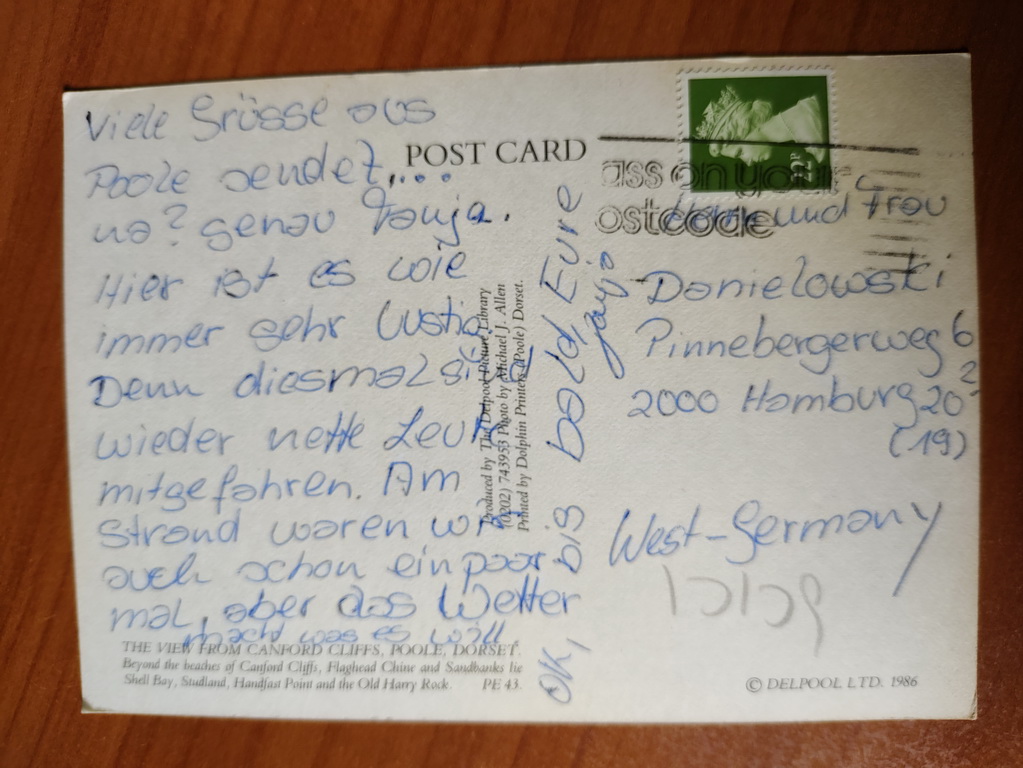 Viele Grüsse aus
Poole sendet....
na? genau Tanja.
Hier ist es wie
immer sehr lustig.
Denn diesmal sind
wieder nette Leute
mitgefahren. Am
Strand waren wir
auch schon ein paar
mal, aber das Wetter
macht was es will.
OK, bis bald Eure
Tanja
POST CARD
ass on your
ostcode
Herrn und Frau
Danielowski
Pinnebergerweg 6
2000 Hamburg 20
(19)
West-Germany
Produced by The Delpool Picture Library
(0202) 743953 Photo by Michael J. Allen
Printed by Dolphin Printers (Poole) Dorset.
THE VIEW FROM CANFORD CLIFFS, POOLE, DORSET.
Beyond the beaches of Canford Cliffs, Flaghead Chine and Sandbanks lie
Shell Bay, Studland, Handfast Point and the Old Harry Rock. PE 43.
© DELPOOL LTD. 1986